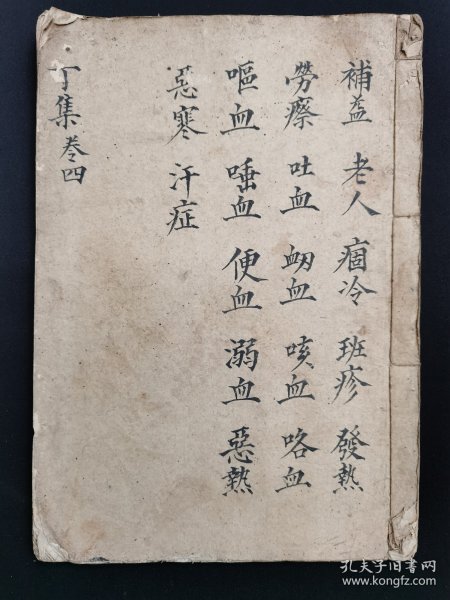 補益 老人 痼冷 班疹 發熱
勞瘵 吐血 衂血 咳血 咯血
嘔血 唾血 便血 溺血 惡熱
惡寒 汗症
丁集 卷四
孔夫子旧书网
www.kongfz.com